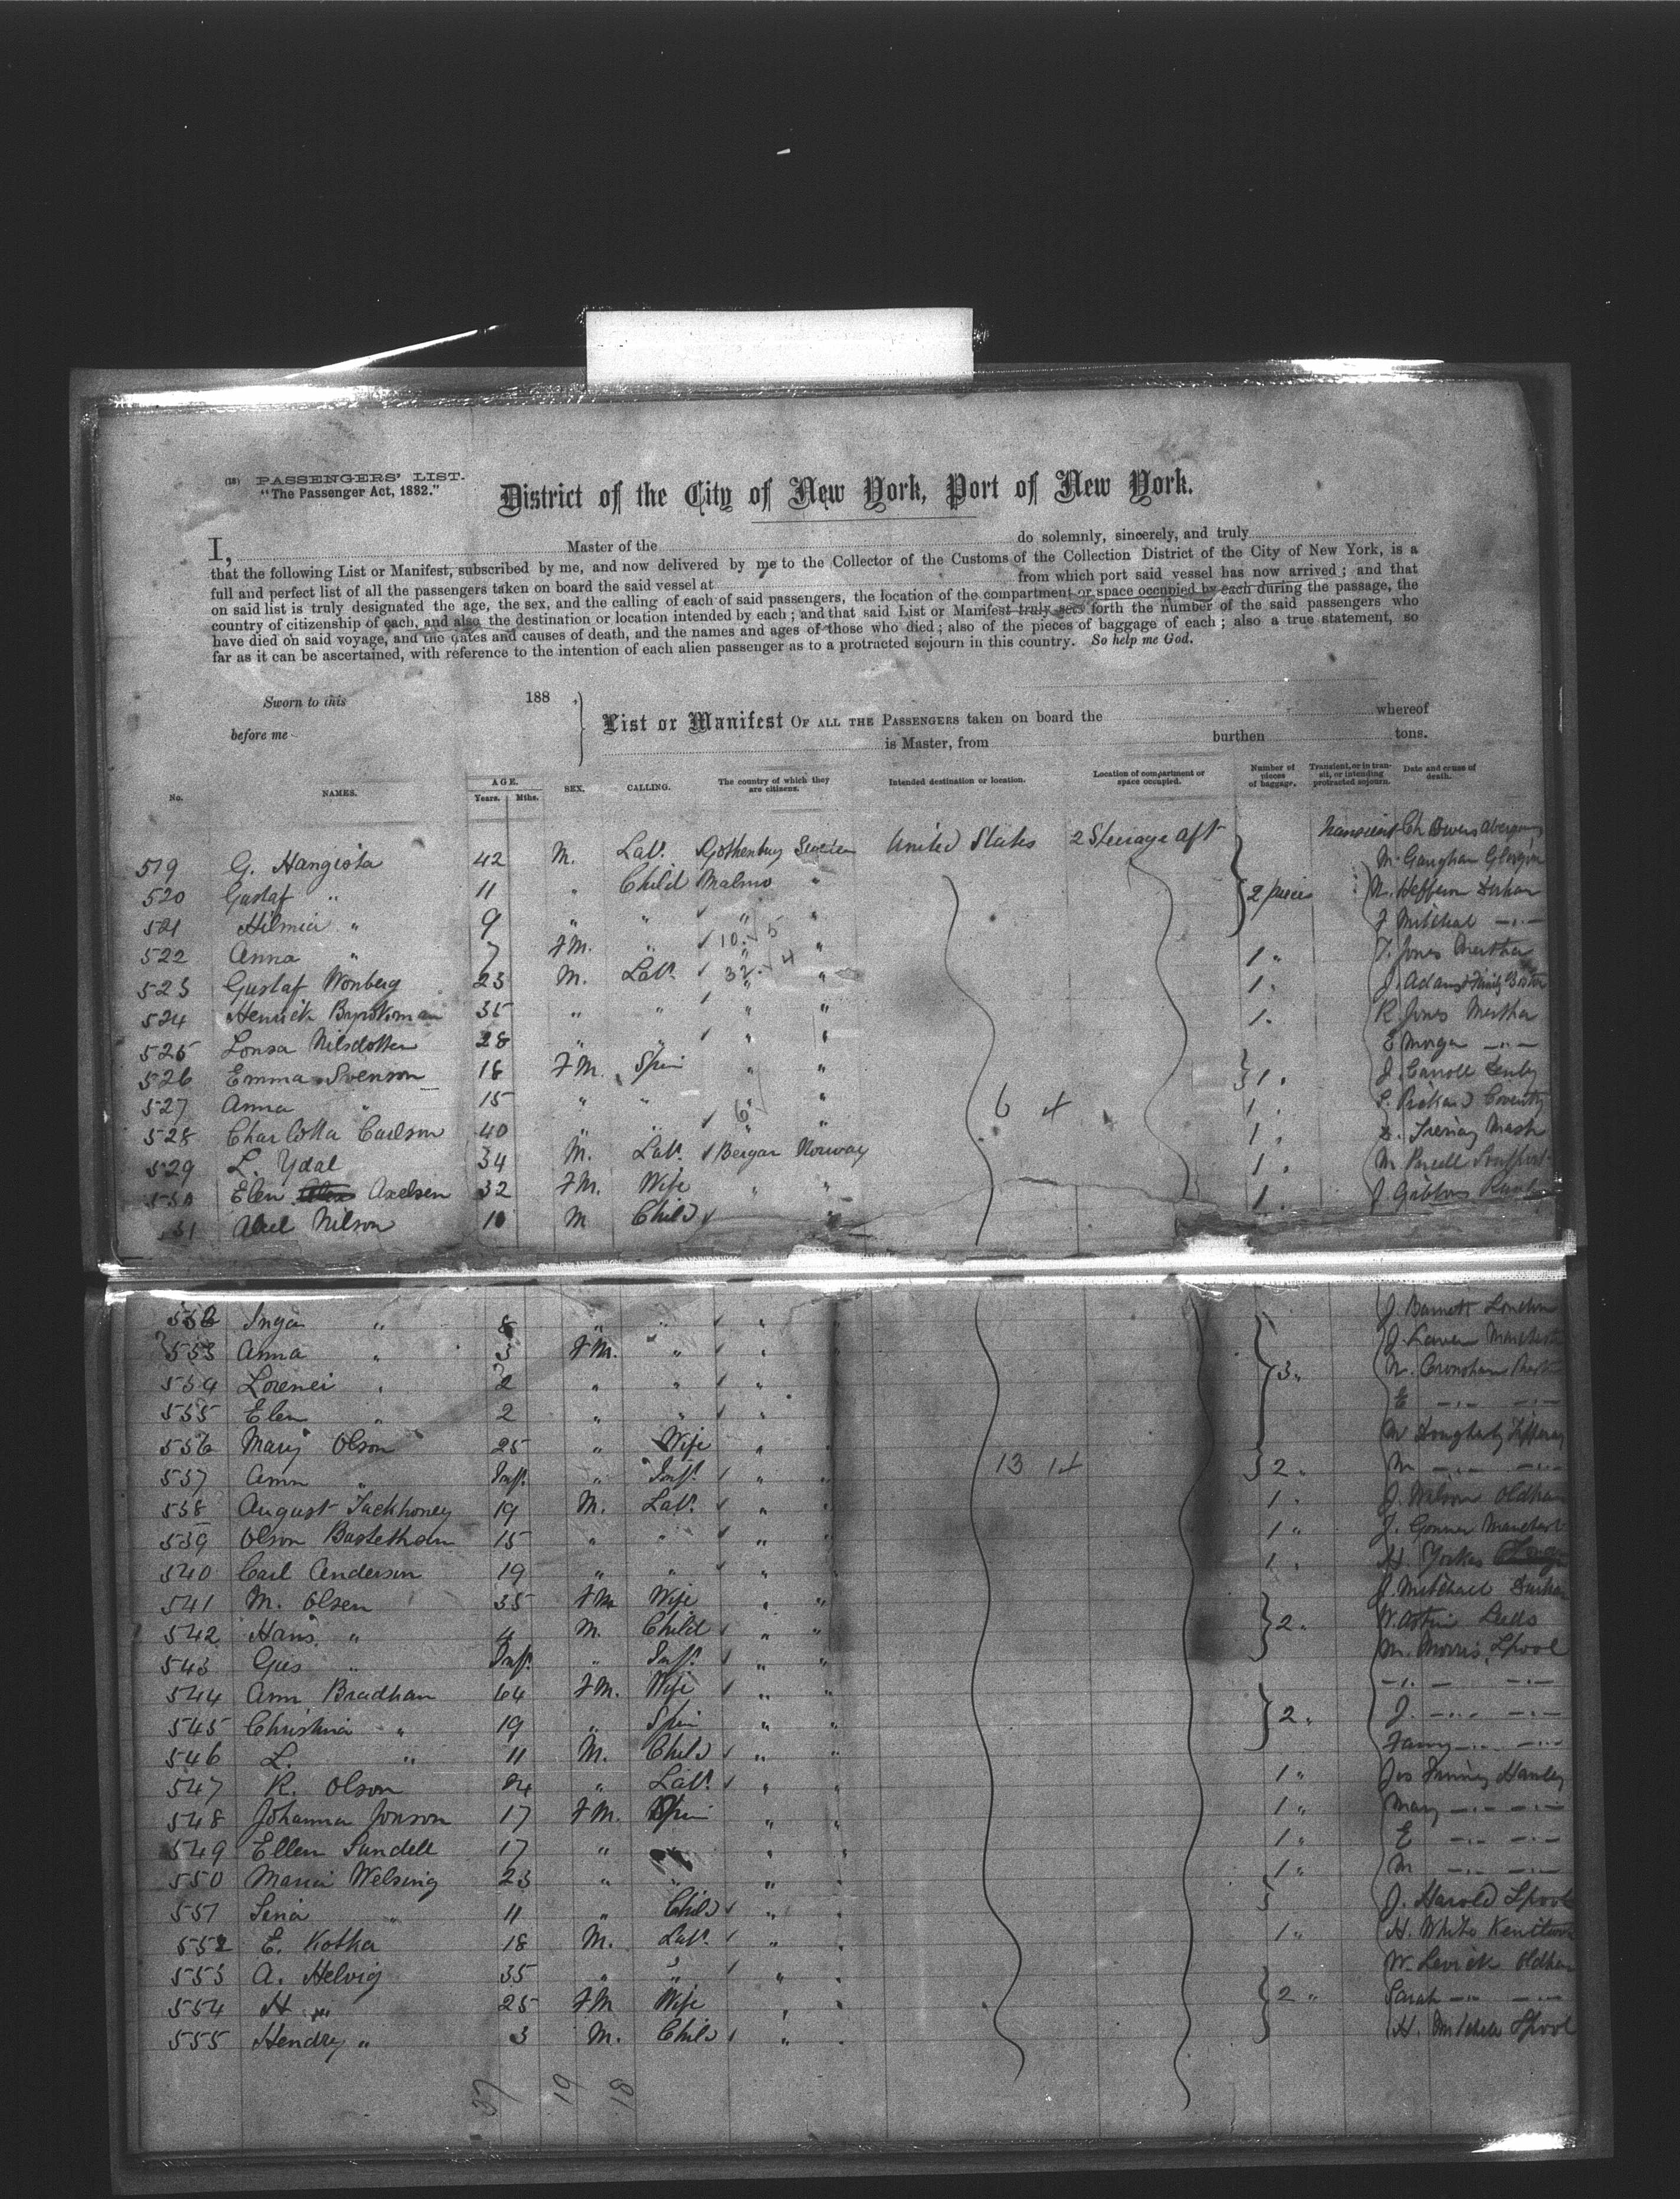 (18) PASSENGERS' LIST.
"The Passenger Act, 1882."
District of the City of New York, Port of New York.
I, Master of the do solemnly, sincerely, and truly
that the following List or Manifest, subscribed by me, and now delivered by me to the Collector of the Customs of the Collection District of the City of New York, is a
full and perfect list of all the passengers taken on board the said vessel at from which port said vessel has now arrived; and that
on said list is truly designated the age, the sex, and the calling of each of said passengers, the location of the compartment or space occupied by each during the passage, the
country of citizenship of each, and also the destination or location intended by each; and that said List or Manifest truly sets forth the number of the said passengers who
have died on said voyage, and the dates and causes of death, and the names and ages of those who died; also of the pieces of baggage of each; also a true statement, so
far as it can be ascertained, with reference to the intention of each alien passenger as to a protracted sojourn in this country. So help me God.
Sworn to this 188
before me
List or Manifest OF ALL THE PASSENGERS taken on board the whereof
is Master, from burthen tons.
No. NAMES. AGE. Years. Mths. SEX. CALLING. The country of which they are citizens. Intended destination or location. Location of compartment or space occupied. Number of pieces of baggage. Transient, or in transit, or intending protracted sojourn. Date and cause of death.
519 G. Hangista 42 M. Lab. Gothenburg Sweden United States 2 Steerage aft Transient
520 Gustaf " 11 " Child Malmo " 2 pieces M. Gaughan
521 Hilmia " 9 " " " " M. Heffern Durham
522 Anna " 7 FM. " " " J Mitchel
523 Gustaf Wonberg 23 M. Lab. " " 1 " T. Jones Merthar
524 Henrick Byorkman 35 " " " " 1 " J. Adams & Family
525 Lonsa Nilsdotter 28 " " " " 1 " R. Jones Merthar
526 Emma Svenson 18 FM. Spin " " E Morgan
527 Anna " 15 " " " " 1 " J. Carroll
528 Charlotta Carlson 40 " " " " 6 4 1 " Coventry
529 L. Ydal 34 M. Lab. Bergan Norway 1 "
530 Elen Axelsen 32 FM. Wife " " 1 " M Purcell
31 Abel Nilson 10 M Child " 1 " J Gibbons
532 Inga " 8 " " " " J. Barnett London
533 Anna " 3 FM. " " "
534 Lorenei " 2 " " " 3 "
535 Elen " 2 " " " E
536 Mary Olson 25 " Wife "
537 Ann " Inft. " Inft. " " 13 14 2 " M
538 August Tackhoney 19 M. Lab. " " 1 " J. Wilson Oldham
539 Olson Bastethsen 15 " " " " 1 "
540 Carl Anderson 19 " " " " 1 " H. Yorkas
541 M. Olsen 35 FM Wife " " J. Mitchell Durham
542 Hans " 4 M. Child " " 2 " Leeds
543 Gus " Inft. " Inft. " " M. Morris Lpool
544 Ann Bradhan 64 FM. Wife " "
545 Christina " 19 " Spin " " 2 " J.
546 L. " 11 M. Child " " Fanny
547 R. Olson 24 " Lab. " " 1 " Jos Hanley
548 Johanna Jonson 17 FM. Spin " " 1 " Mary
549 Ellen Sundell 17 " " " 1 " E
550 Maria Welsing 23 " " " " 1 " M
551 Sina " 11 " Child " " J. Harold Lpool
552 E. Kotka 18 M. Lab. " " 1 " H. White
553 A. Helvig 35 " " " " W. Levick Oldham
554 H " 25 FM Wife " " 2 " Sarah
555 Hendry " 3 M. Child " " H. Mitchell Lpool
37 19 18